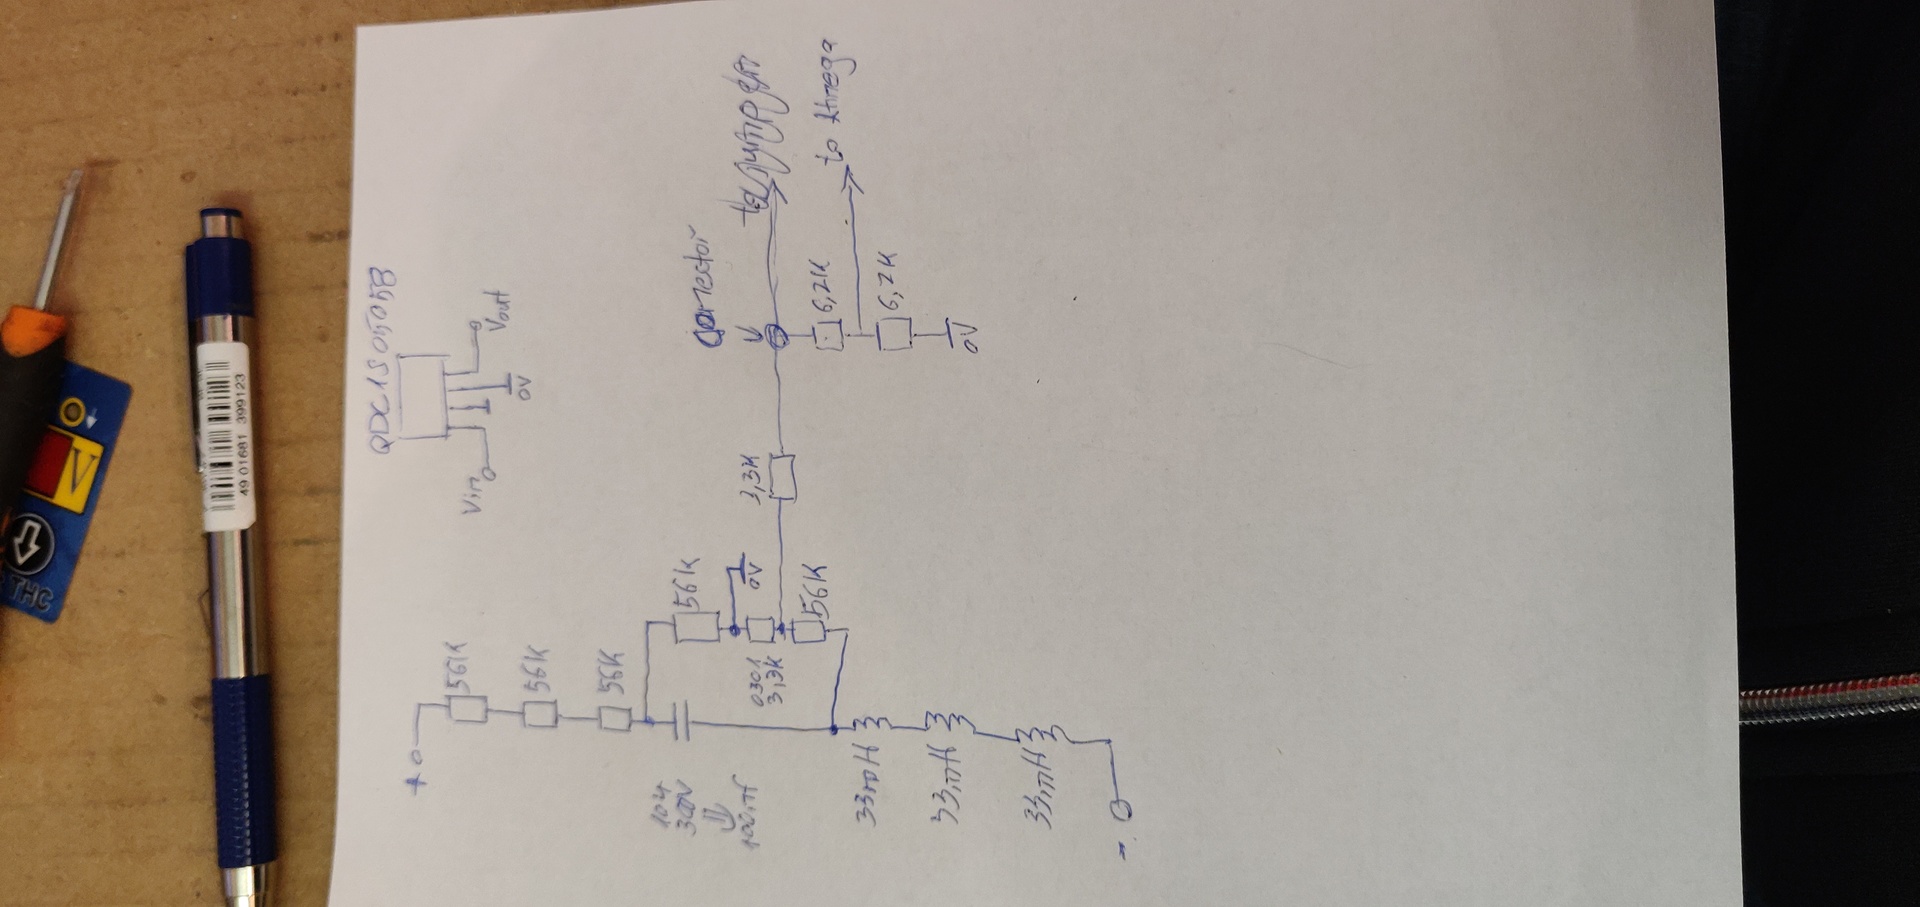 QDC1S0505B
Vin
Vout
0V
+
56K
56K
56K
56K
0V
0301
3,3K
56K
3,3K
6,2K
6,2K
0V
to Atmega
104
300V
33mH
33mH
33mH
-
49 01681 399123
V
THC